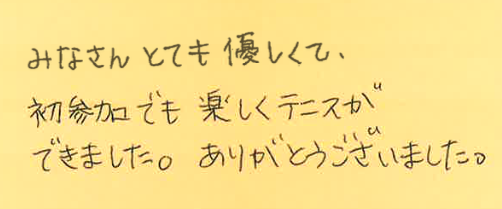 みなさん とても 優しくて、
初参加でも 楽しくテニスが
できました。 ありがとうございました。